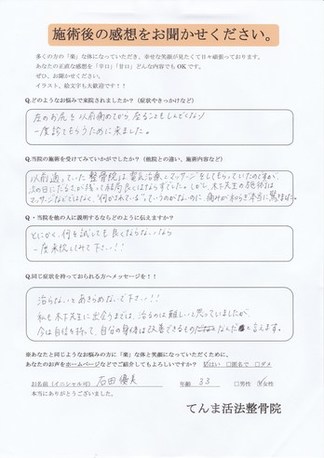 施術後の感想をお聞かせください。
多くの方の「楽」な体になっていただき、幸せな笑顔が見たくて日々頑張っております。
あなたの正直な感想を「辛口」「甘口」どんな内容でもOKです。
ぜひ、お聞かせください。
イラスト、絵文字も大歓迎です!!
Q.どのようなお悩みで来院されましたか?(症状やきっかけなど)
左のお尻を以前痛めてから、座ることもしんどくなり
一度診てもらうために来ました。
Q.当院の施術を受けてみていかがでしたか?(他院との違い、施術内容など)
以前通っていた整骨院は電気治療とマッサージをしてもらっていたのですが、
次の日にだるさが残って結局良くはならずでした。しかし、木下先生の施術は
マッサージなどではなく、"何かされている"っていうのがないのに、痛みが和らぎ本当に驚きました。
Q.当院を他の人に説明するならどのように伝えますか?
とにかく、何を試しても良くならないなら
一度来院してみて下さい!!
Q.同じ症状を持っておられる方へメッセージを!!
治らないとあきらめないで下さい!!
私も木下先生に出会うまでは、治るのは難しいと思っていましたが、
今は自信を持って、自分の身体は改善できるものなんだと言えます。
※あなたと同じようなお悩みの方に「楽」な体と笑顔になっていただくために、
あなたのお声をホームページなどでご紹介してもよろしいですか? はい □匿名で □ダメ
お名前(イニシャル可) 石田優美 年齢 33 □男性 女性
本当にありがとうございました。
てんま活法整骨院